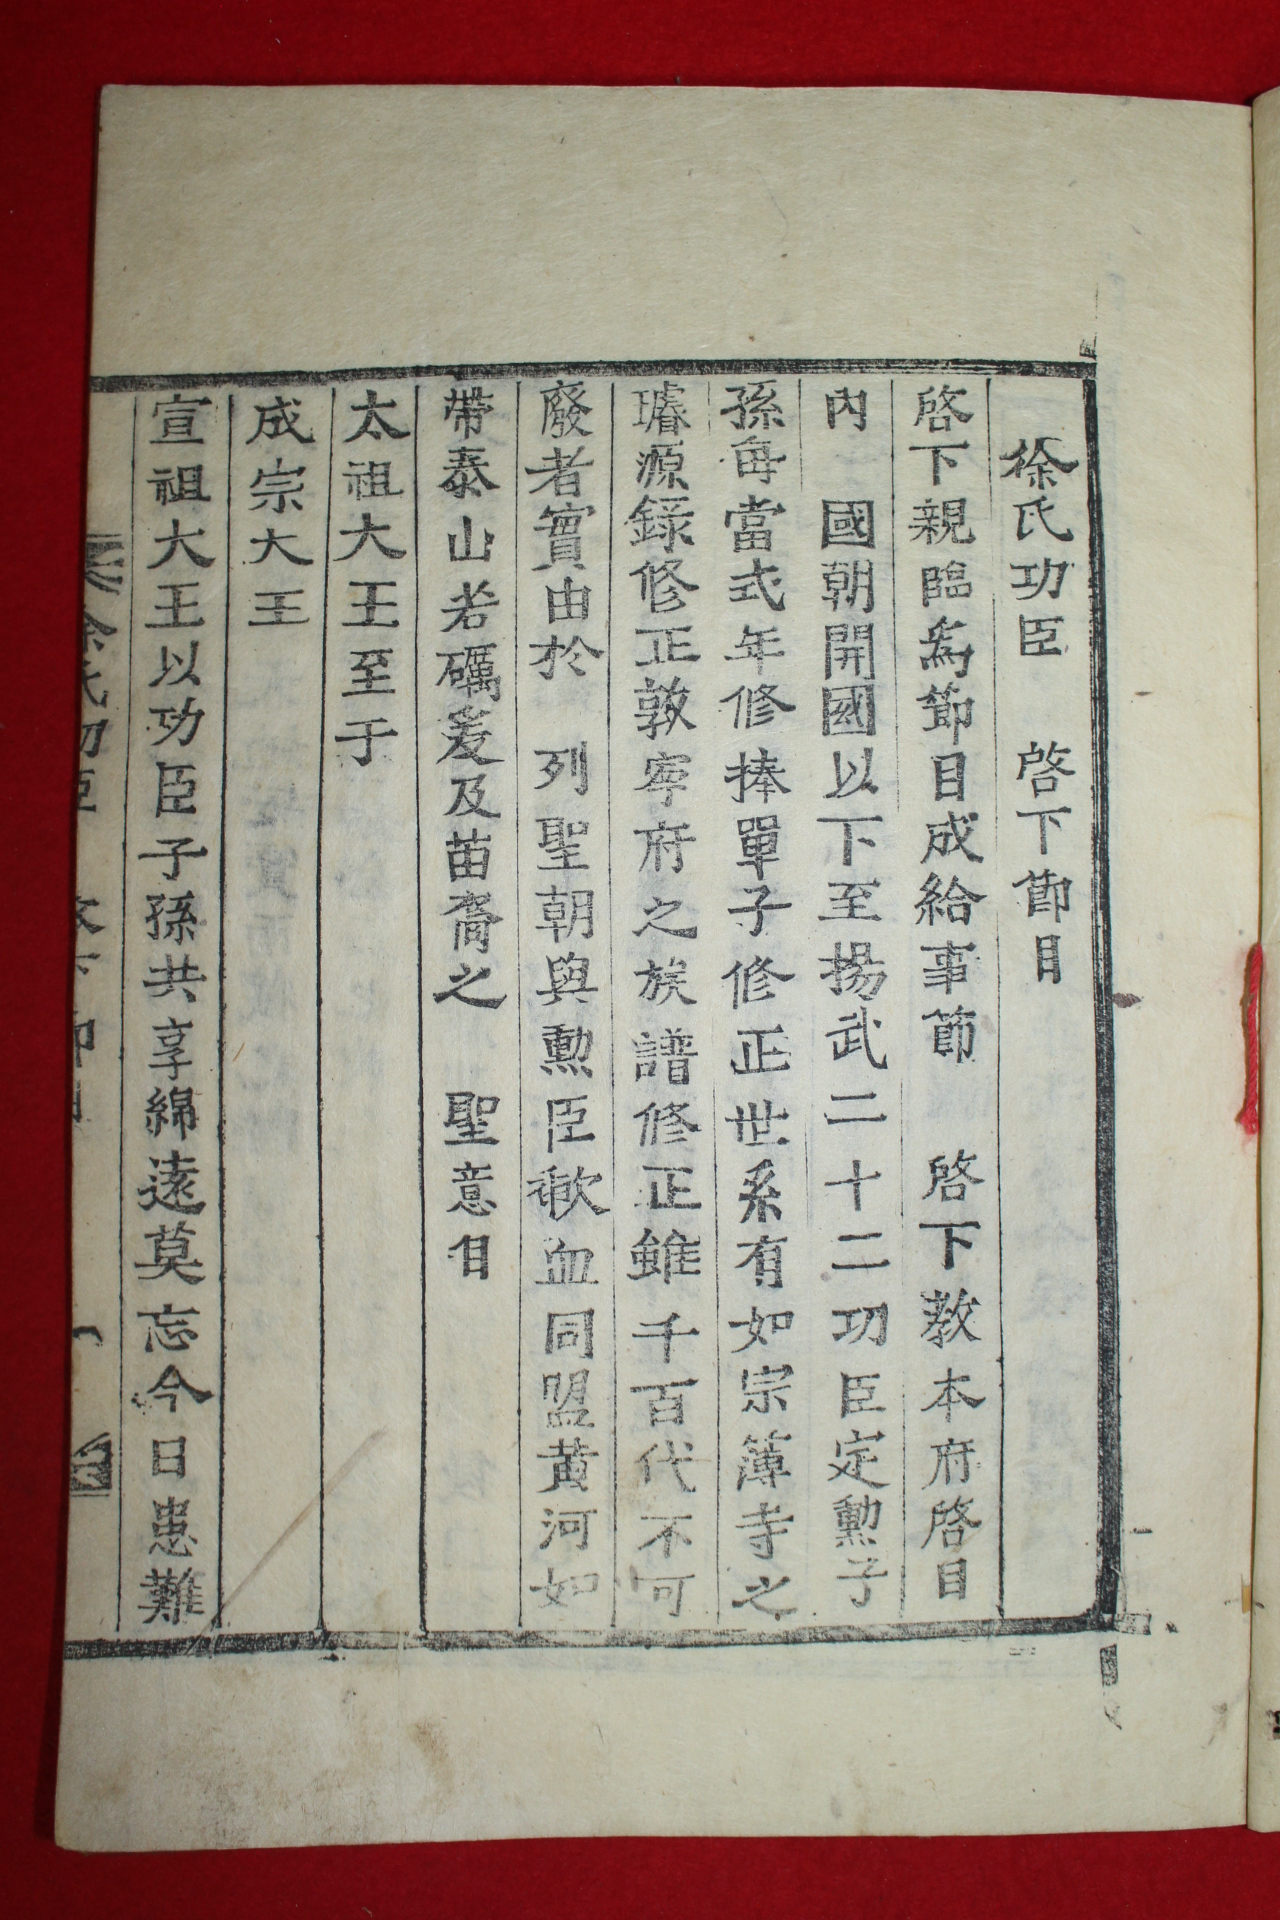 徐氏功臣 啓下節目
啓下親臨爲節目成給事節 啓下敎本府啓目
內 國朝開國以下至揚武二十二功臣定勳子
孫每當式年修捧單子修正世系有如宗簿寺之
璿源錄修正敦寧府之族譜修正雖千百代不可
廢者實由於 列聖朝與勳臣歃血同盟黃河如
帶泰山若礪爰及苗裔之 聖意自
太祖大王至于
成宗大王
宣祖大王以功臣子孫共享綿遠莫忘今日患難
徐氏功臣